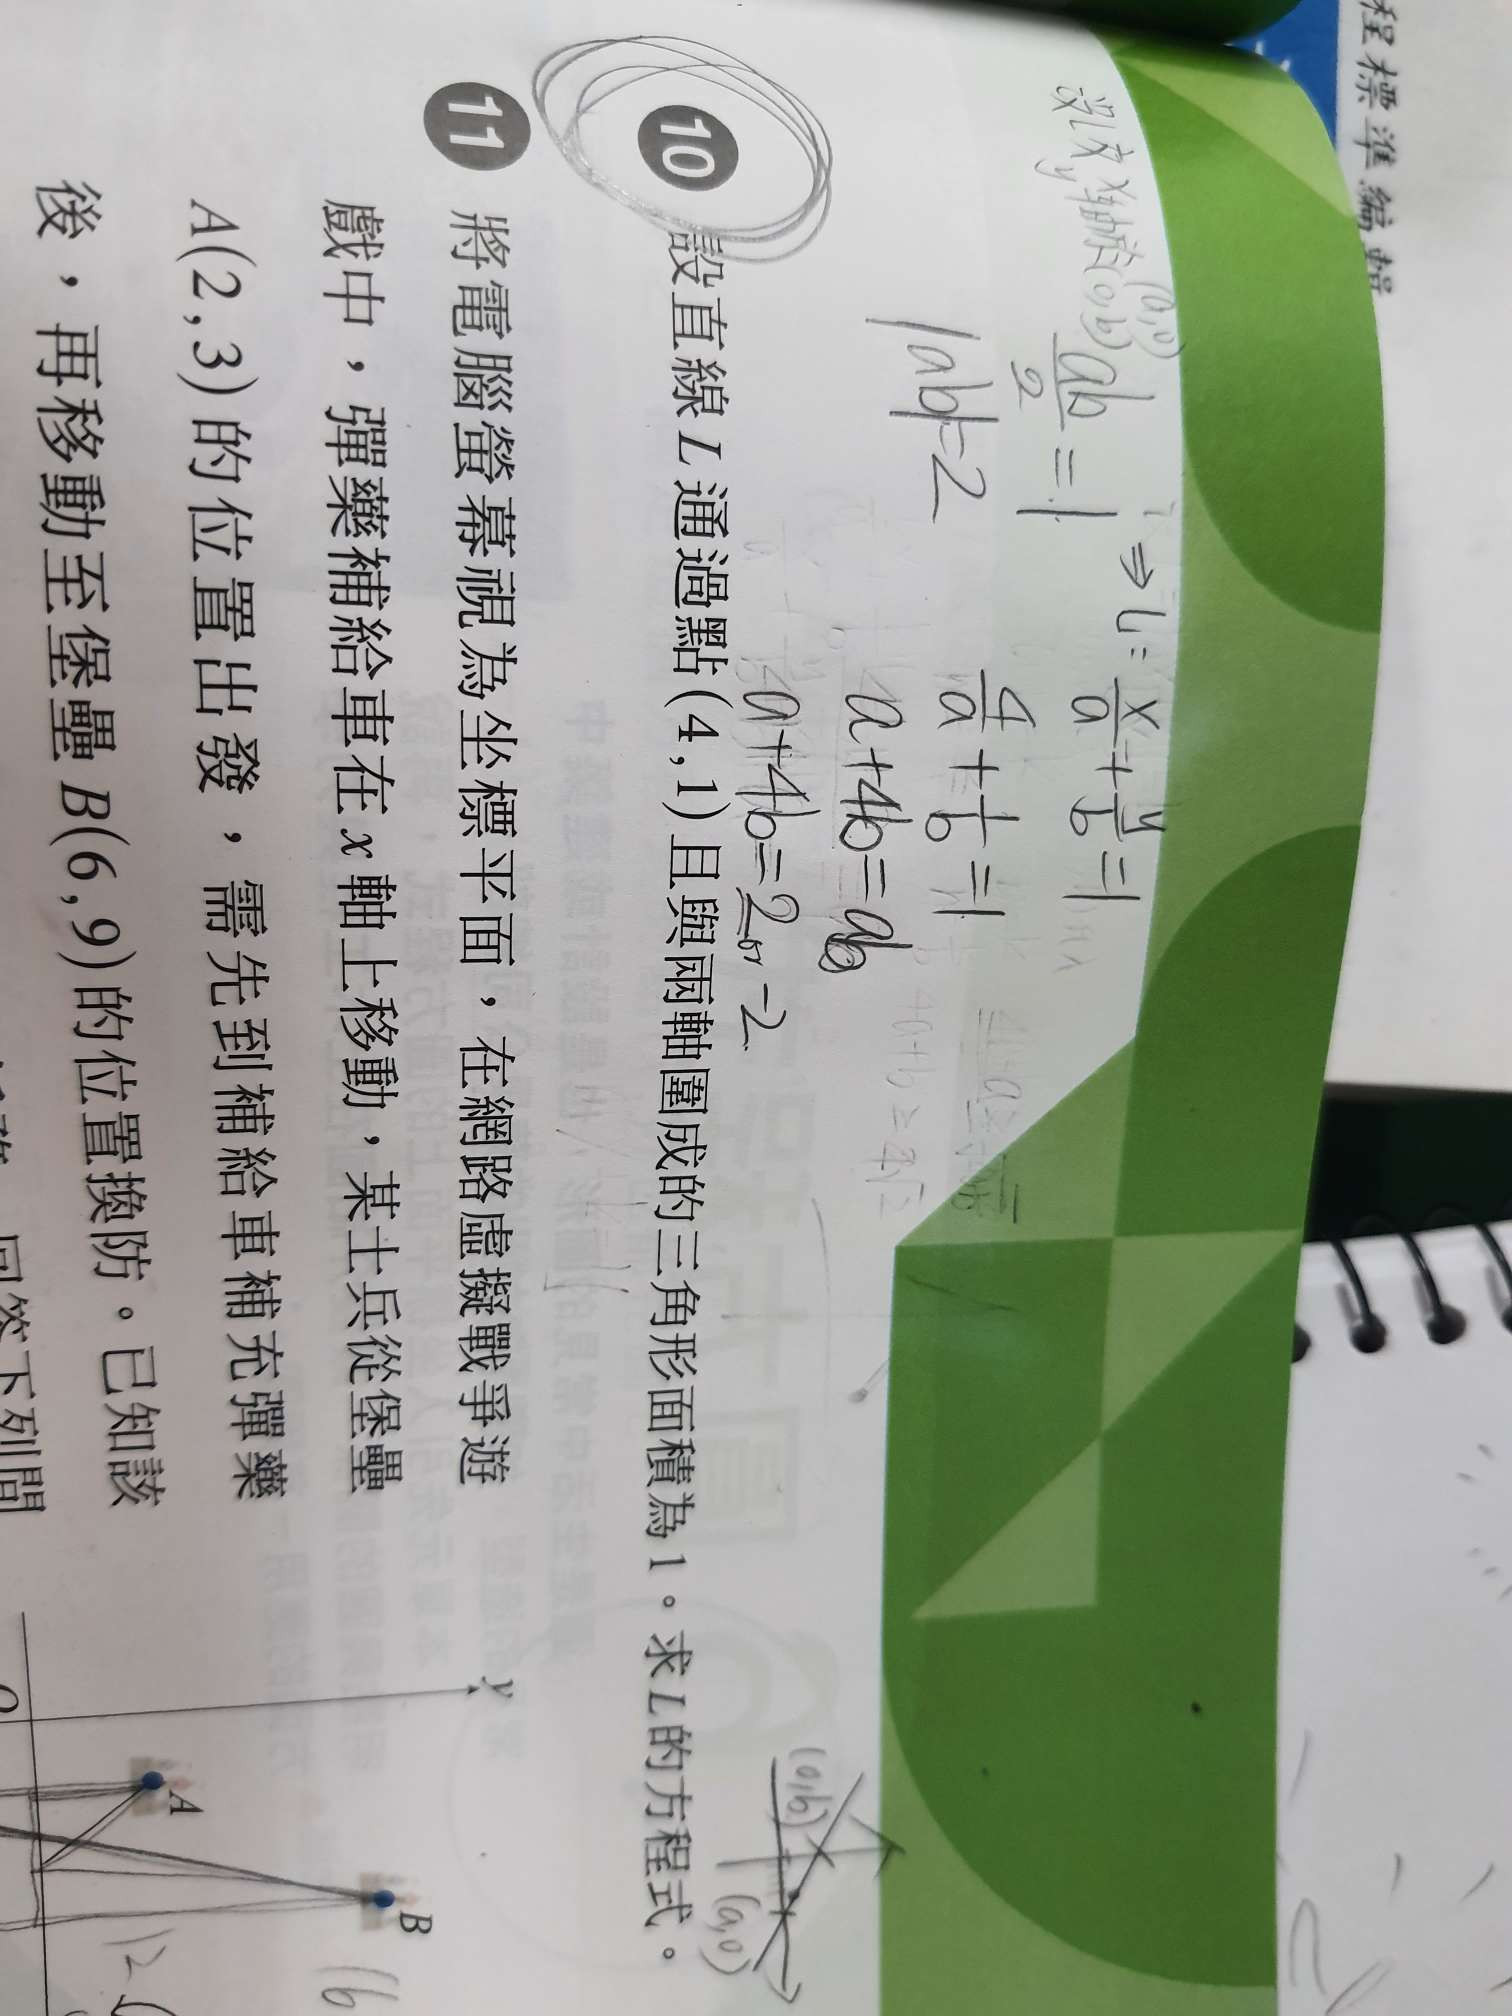 程標準編輯
(a,0)
(0,b)
ab/2=1 ⇒ L: x/a+y/b=1
|ab|=2
4/a+1/b=1
a+4b=ab
a+4b=2 or -2
4a+b≥4√2
10 設直線L通過點(4,1)且與兩軸圍成的三角形面積為1。求L的方程式。
(0,b)
(a,0)
11 將電腦螢幕視為坐標平面，在網路虛擬戰爭遊
戲中，彈藥補給車在x軸上移動，某士兵從堡壘
A(2,3)的位置出發，需先到補給車補充彈藥
後，再移動至堡壘B(6,9)的位置換防。已知該
回答下列問
y
A
B
O
12
16